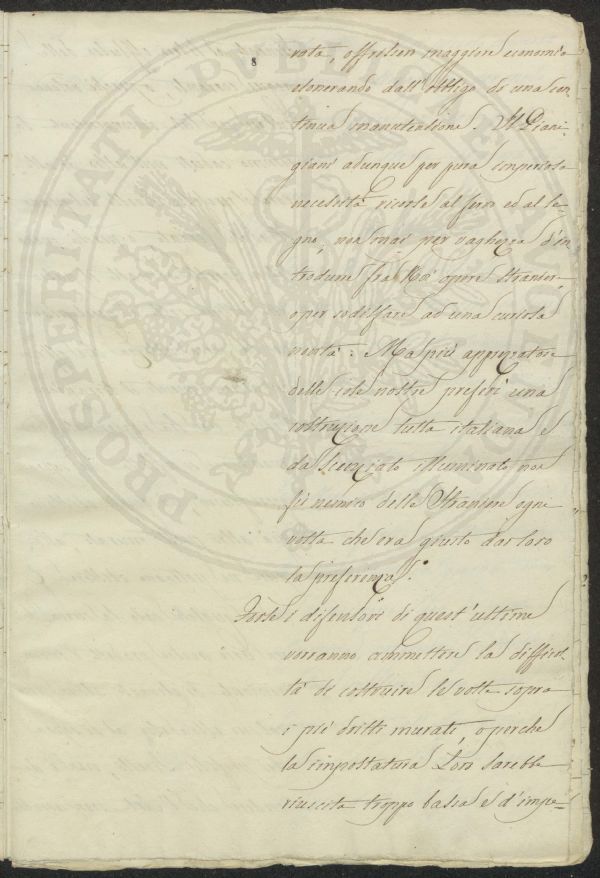 8
rata, offrissero maggiore economia
elonerando dall' obligo di una con-
tinua manutenzione. Il Diani-
giani adunque per pura imperiosa
necessità ricorse al ferro ed al le-
gno, non mai per vaghezza d'in
trodurre fra Noi opere straniere,
o per sodisfare ad una curiosa
novità: Ma più apprezzatore
delle cose nostre preferì una
costruzione tutta italiana e
da Scienziato illuminato non
fù nemico delle Straniere ogni
volta che era giusto dar loro
la preferenza.
Forse i difensori di quest' ultime
vorranno ammettere la difficol-
tà di costruire le volte sopra
i piè dritti murati, o perche
la impostatura Loro sarebbe
riuscita troppo bassa e d'impe-
PROSPERITATI PUBLICAE AUGENDAE